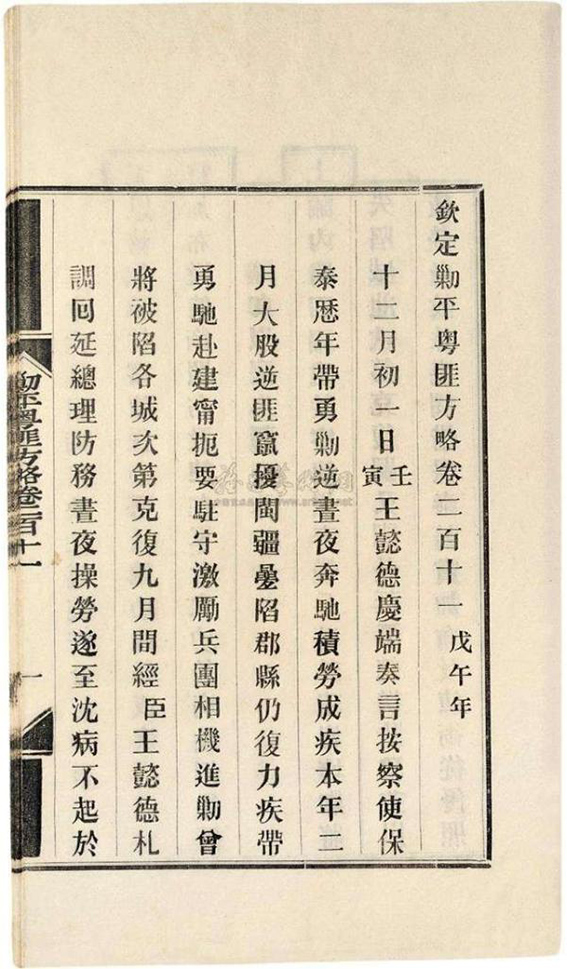 欽定勦平粤匪方略卷二百十一 戊午年
十二月初一日壬寅王懿德慶端奏言按察使保
泰歷年帶勇勦逆晝夜奔馳積勞成疾本年二
月大股逆匪竄擾閩疆疊陷郡縣仍復力疾帶
勇馳赴建甯扼要駐守激厲兵團相機進勦曾
將被陷各城次第克復九月間經臣王懿德札
調回延總理防務晝夜操勞遂至沈病不起於
勦平粤匪方略卷二百十一
一